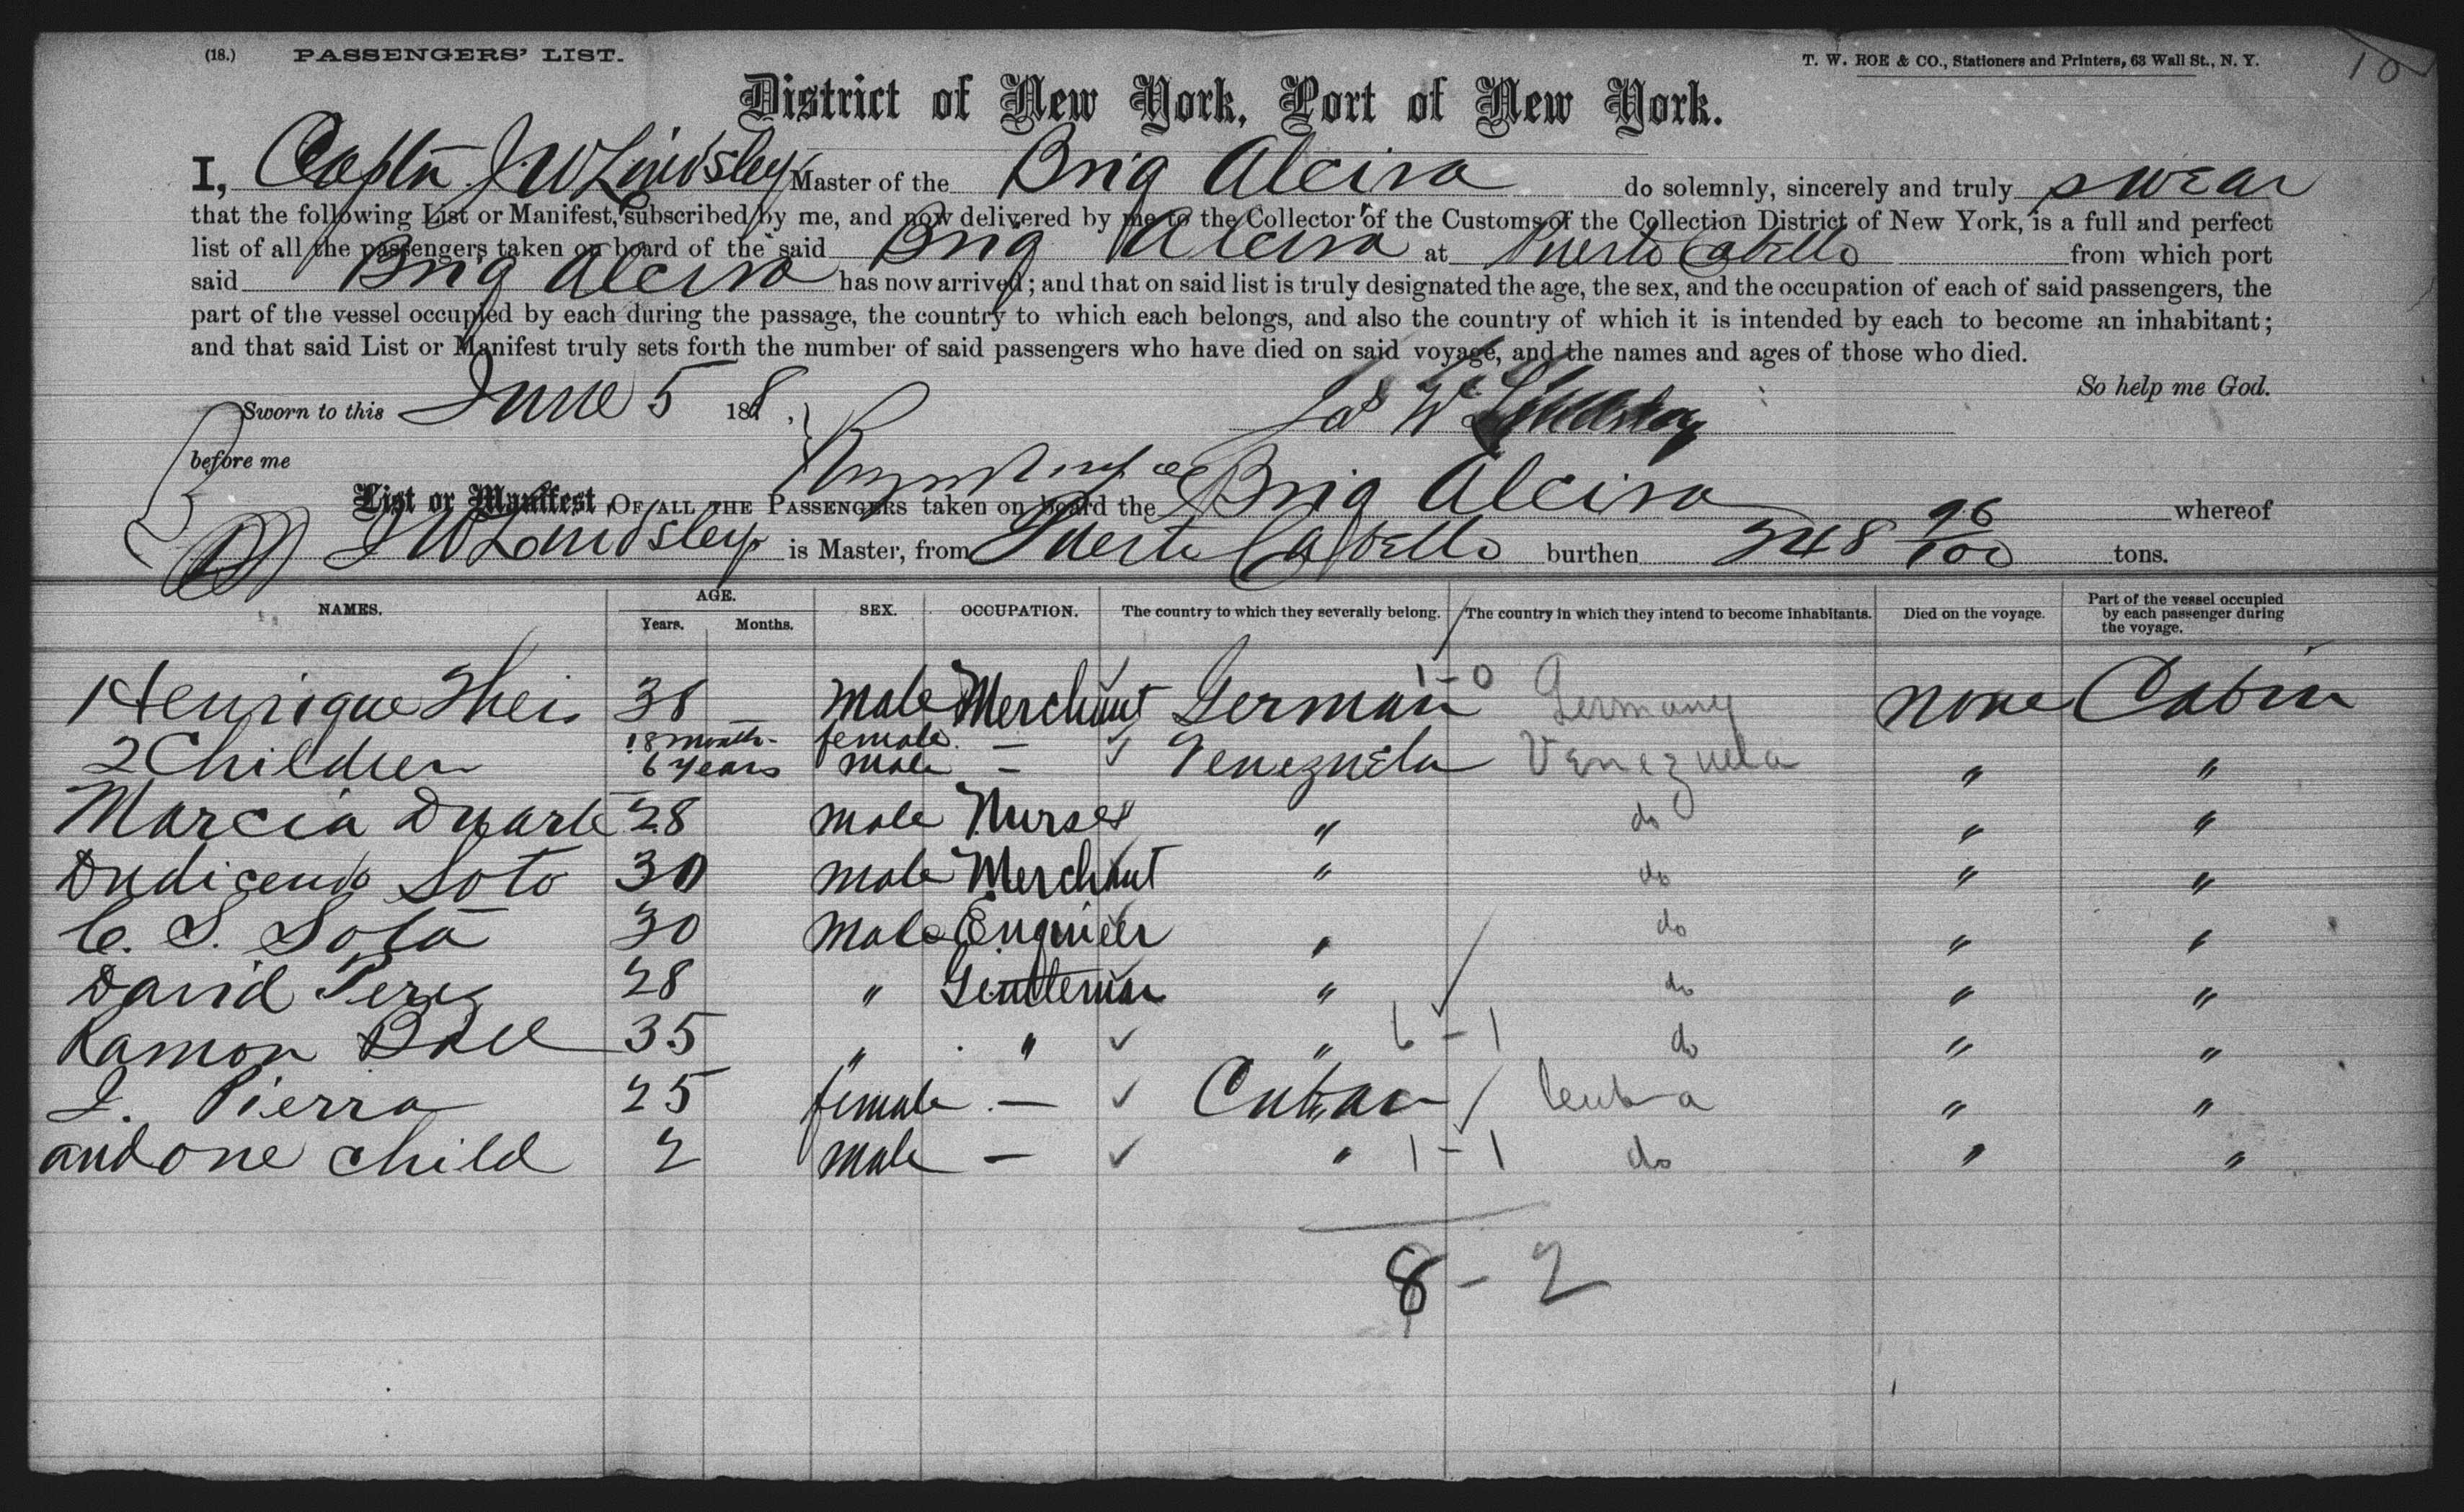 (18.) PASSENGERS' LIST. T. W. ROE & CO., Stationers and Printers, 63 Wall St., N. Y. 10
District of New York, Port of New York.
I, Captn J. W Lindsley Master of the Brig Alcira do solemnly, sincerely and truly swear
that the following List or Manifest, subscribed by me, and now delivered by me to the Collector of the Customs of the Collection District of New York, is a full and perfect
list of all the passengers taken on board of the said Brig Alcira at Puerto Cabello from which port
said Brig Alcira has now arrived; and that on said list is truly designated the age, the sex, and the occupation of each of said passengers, the
part of the vessel occupied by each during the passage, the country to which each belongs, and also the country of which it is intended by each to become an inhabitant;
and that said List or Manifest truly sets forth the number of said passengers who have died on said voyage, and the names and ages of those who died.
So help me God.
Sworn to this June 5 188 , Jas W Lindsley
before me
List or Manifest, OF ALL THE PASSENGERS taken on board the Brig Alcira whereof
J W Lindsley is Master, from Puerto Cabello burthen 248 96/100 tons.
NAMES. AGE. Years. Months. SEX. OCCUPATION. The country to which they severally belong. The country in which they intend to become inhabitants. Died on the voyage. Part of the vessel occupied by each passenger during the voyage.
Henrique Theis 38 – male Merchant German 1-0 Germany none Cabin
2 Children 18 month female – 6 years male – Venezuela Venezuela " "
Marcia Duarte 28 male Nurse " do " "
Dudicendo Soto 30 male Merchant " do " "
C. S. Sota 30 male Enginier " do " "
David Perez 28 " Gentleman " do " "
Ramon 35 " " " 6-1 do " "
J. Pierra 25 female – Cuban Cuba " "
and one child 2 male – " 1-1 do " "
8-2